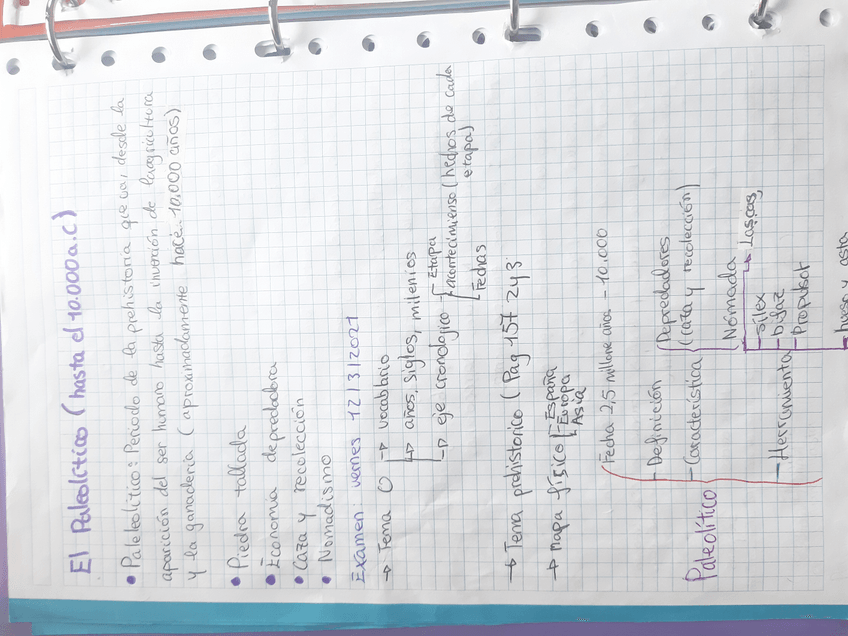 El Paleolítico (hasta el 10.000 a.C)
• Paleleolítico: Periodo de la prehistoria que va, desde la
aparición del ser humano hasta la invención de la agricultura
y la ganadería (aproximadamente hace 10.000 años)
• Piedra tallada
• Economía depredadora
• Caza y recolección
• Nomadismo
Examen viernes 12/3/2021
→ Tema 0 → vocablario
→ años, siglos, milenios
→ eje cronologico
Etapa
acontecimienso (hechos de cada
etapa)
Fechas
→ Tema prehistorico (Pág 157 243
→ mapa físico
- España
- Europa
Asia
Paleolítico
Fecha 2,5 millone años - 10.000
- Definición
- Característica
Depredadores
(caza y recolección)
Nómada
- Herramienta
- sílex → Lascas,
- bifaz
- propulsor
- hueso y asta